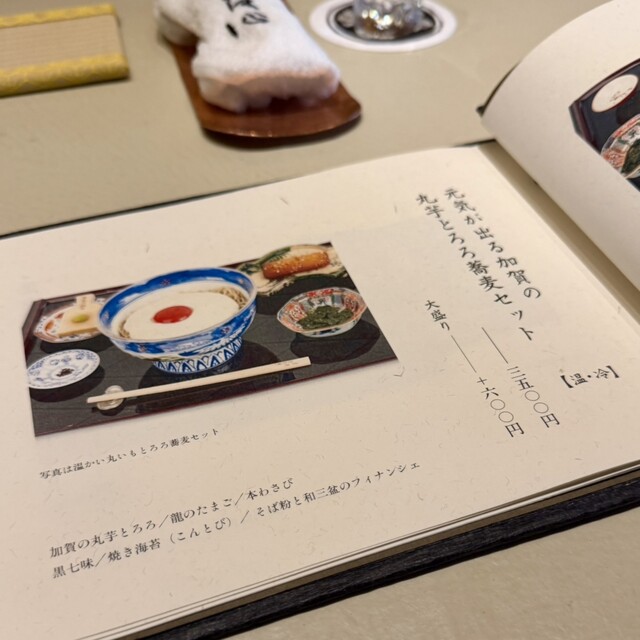 元気が出る加賀の
丸芋とろろ蕎麦セット
【温・冷】
――三五〇〇円
大盛り――+六〇〇円
写真は温かい丸いもとろろ蕎麦セット
加賀の丸芋とろろ／龍のたまご／本わさび
黒七味／焼き海苔（こんとび）／そば粉と和三盆のフィナンシェ